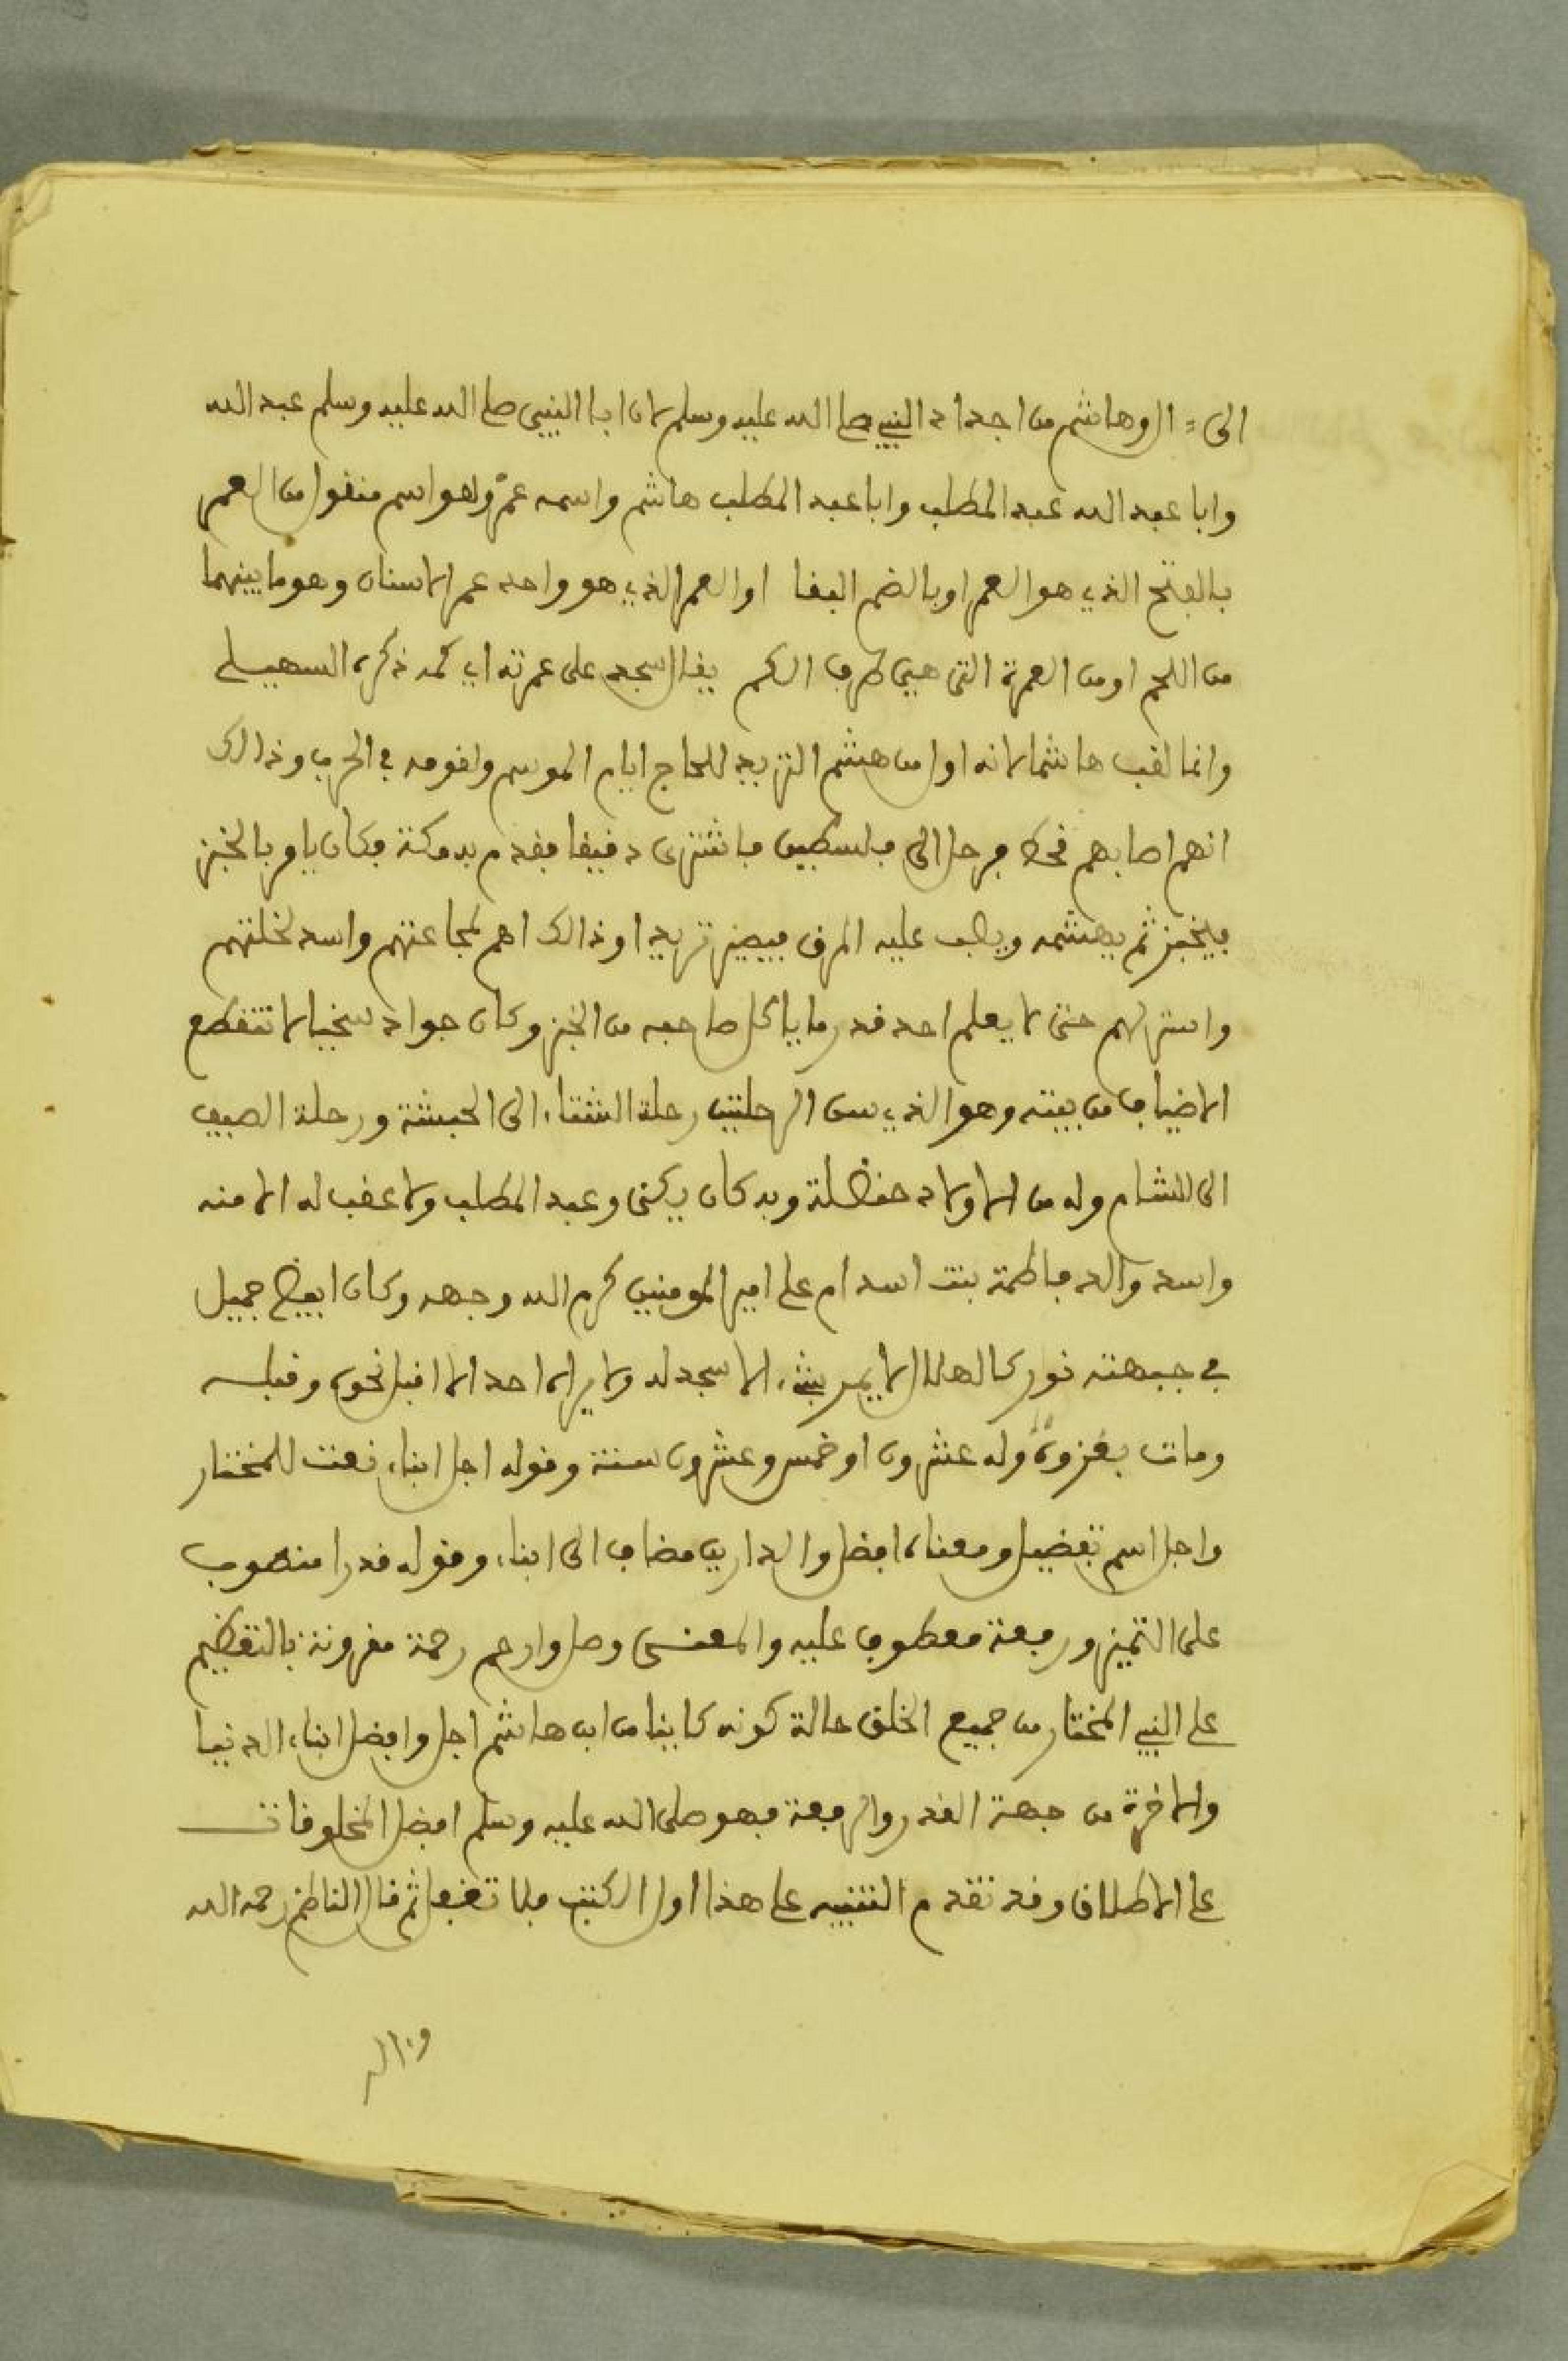 الى = ال وهاشم من اجداد النبيي صلى الله عليه وسلم لان ابا النبيى صلى الله عليه وسلم عبد الله
وابا عبد الله عبد المطلب وابا عبد المطلب هاشم واسمه عمرٌو وهو اسم منقول من العمر
بالفتح الذي هو العمر او بالضم البقا او العمر الذي هو واحد عمر الاسنان وهو ما بينهما
من اللحم او من العمرة التى هيى طرف الكم يقال سجد على عمرته اي كمه ذكره السهيلى
وانما لقب هاشما لانه اول من هشم الثريد للحاج ايام الموسم ولقومه في الحرب وذالك
انهم اصابهم قحط فرحل الى فلسطين فاشترى دقيقا فقدم به مكة فكان يامر بالخبز
فيخبز ثم يهشمه ويصب عليه المرق فيصير ثريدا وذالك اهم لمجاعتهم واسد لخلتهم
واستر لهم حتى لا يعلم احد قدر ما ياكل صاحبه من الخبز وكان جوادا سخيا لا تنقطع
الاضياف من بيته وهو الذي سن الرحلتين رحلة الشتاء الى الحبشة ورحلة الصيف
الى الشام وله من الاولاد حنضلة وبه كان يكنى وعبد المطلب ولا عقب له الا منه
واسد والد فاطمة بنت اسد ام على امير المومنين كرم الله وجهه وكان ابيض جميل
في جبهته نور كالهلال لا يمر بشيء الا سجد له ولا يراه احد الا اقبل نحوه وقبله
ومات بغزوة وله عشرون او خمس وعشرون سنة وقوله اجل ابناء نعت للمختار
واجل اسم تفضيل ومعناه افضل والدارين مضاف الى ابناء وقوله قدرا منصوب
على التميز ورفعة معطوف عليه والمعنى وصل وارحم رحمة مقرونة بالتعظيم
على النبيي المختار من جميع الخلق حالة كونه كاينا من ابن هاشم اجل وافضل ابناء الدنيا
والاخرة من جهة القدر والرفعة فهو صلى الله عليه وسلم افضل المخلوقات
على الاطلاق وقد تقدم التنبيه على هذا اول الكتب فلا تغفل ثم قال الناظم رحمه الله